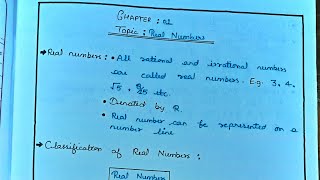 CHAPTER : 01
Topic : Real Numbers
→ Real numbers : • All rational and irrational numbers
are called real numbers. E.g. 3, 4,
√5, 9/25 etc.
• Denoted by R.
• Real number can be represented on a
number line
→ Classification of Real Numbers :
Real Number